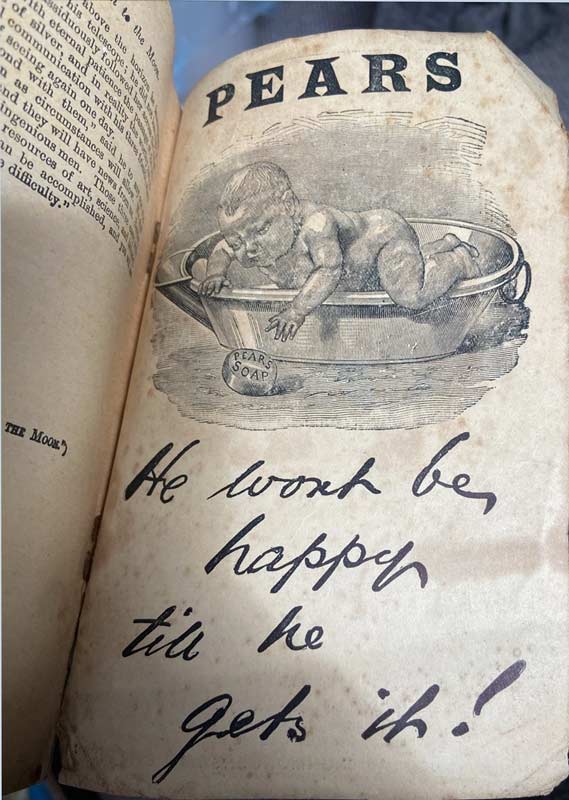 t to the Moon.
above the horizon
his telescope, he did
assiduously followed the
with eternal patience the passing
of silver, and in reality the
communication with his three
seeing again one day.
ond with them," said he to
n as circumstances will allow
nd they will have news from
ingenious men. Those
resources of art, science, and
an be accomplished, and you
e difficulty."
THE MOON.")
PEARS
PEARS
SOAP
He wont be
happy
till he
gets it!